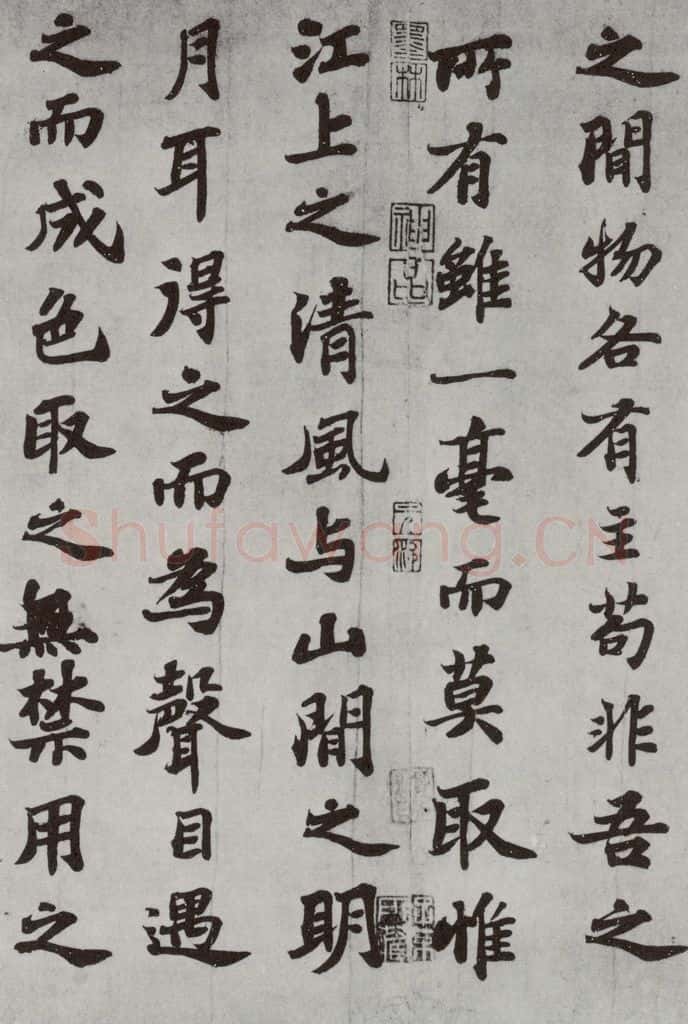 之間物各有主苟非吾之
所有雖一毫而莫取惟
江上之清風与山間之明
月耳得之而為聲目遇
之而成色取之無禁用之
Shufawang.CN
神品